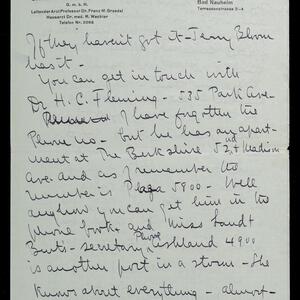 G. m. b. H.
Leitender Arzt: Professor Dr. Franz M. Groedel
Hausarzt Dr. med. R. Wachter
Telefon Nr. 2066
Bad Nauheim
Terrassenstrasse 2-4
If they haven't got it - Jerry Blum
has it -
You can get in touch with
Dr H. C. Fleming - 535 Park Ave -
I have forgotten the
Phone no - but he has an apart-
ment at The Berkshire 52 + Madison
Ave. and as I remember the
number is Plaza 5900 - Well
anyhow you can get him in the
phone book + and Miss
secretary Phone Ashland 4900
is another port in a storm - She
knows about everything - almost -